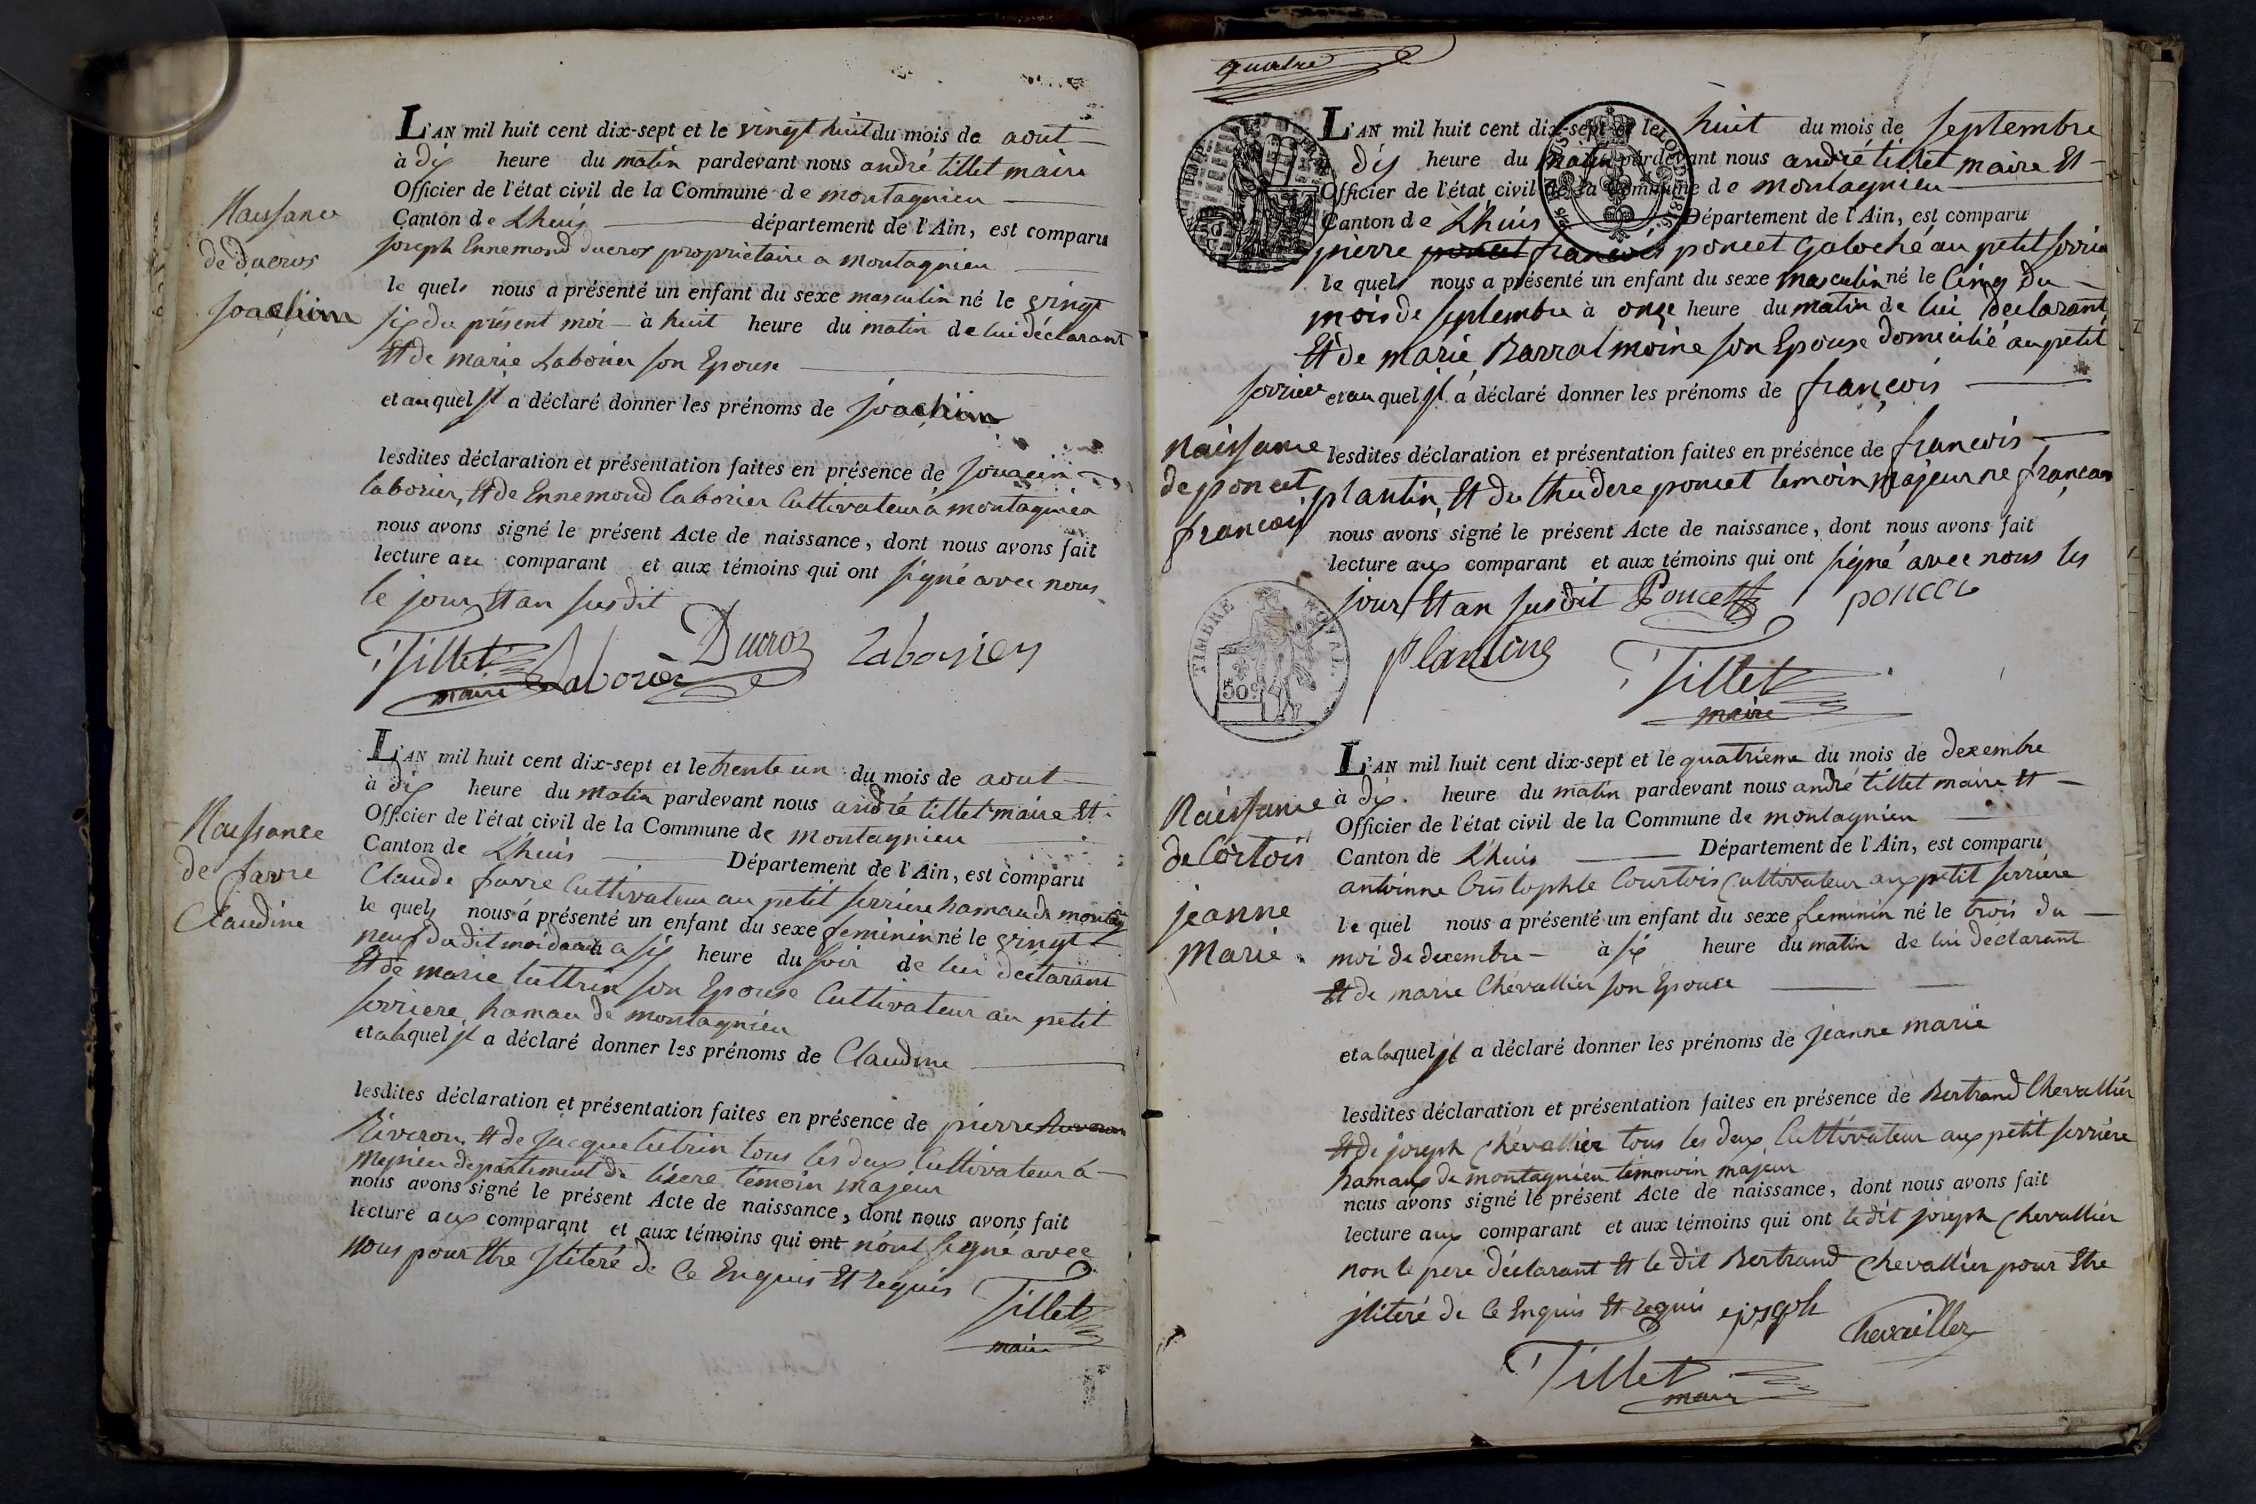 Naissance
de ducros
joachim
L'AN mil huit cent dix-sept et le vingt huit du mois de aout
à dix heure du matin pardevant nous andré tillet maire
Officier de l'état civil de la Commune de montagnieu
Canton de Lhuis département de l'Ain, est comparu
joseph Ennemond ducros propriétaire a montagnieu
le quel nous a présenté un enfant du sexe masculin né le vingt
six du présent moi à huit heure du matin de lui déclarant
Et de marie Laborier son Epouse
et au quel jl a déclaré donner les prénoms de joachim
lesdites déclaration et présentation faites en présence de
laborier, Et de Ennemond laborier Cultivateur à montagnieu
nous avons signé le présent Acte de naissance, dont nous avons fait
lecture au comparant et aux témoins qui ont signé avec nous
le jour Et an susdit
Tillet maire Laborier Ducroz Laborier
Naissance
de favre
Claudine
L'AN mil huit cent dix-sept et le trente un du mois de aout
à dix heure du matin pardevant nous andré tillet maire Et
Officier de l'état civil de la Commune de montagnieu
Canton de Lhuis Département de l'Ain, est comparu
Claude favre Cultivateur au petit serriere hamau de montag
le quel nous a présenté un enfant du sexe feminin né le vingt
neuf du dit moi daout a six heure du soir de lui déclarant
Et de marie luttrin son Epouse Cultivateur au petit
serriere, hamau de montagnieu
et a laquel jl a déclaré donner les prénoms de Claudine
lesdites déclaration et présentation faites en présence de pierre
Riveron Et de jacque lutrin tous les deux Cultivateur à
departement de lisere témoin majeur
nous avons signé le présent Acte de naissance, dont nous avons fait
lecture aux comparant et aux témoins qui ont n'ont signé avec
nous pour Etre jliteré de Ce Enquis Et requis
Tillet
maire
quatre
L'AN mil huit cent dix-sept et le huit du mois de septembre
dix heure du matin pardevant nous andré tillet maire Et
Officier de l'état civil de la Commune de montagnieu
Canton de Lhuis Département de l'Ain, est comparu
pierre poncet francois poncet Galoché au petit serrie
le quel nous a présenté un enfant du sexe masculin né le Cinq du
mois de septembre à onze heure du matin de lui declarant
Et de marie Barral moine son Epouse domicilié au petit
serriere et au quel jl a déclaré donner les prénoms de françois
Naissance
de poncet
francois
lesdites déclaration et présentation faites en présence de francois
plantin, Et du thudere poncet temoin majeur ne francais
nous avons signé le présent Acte de naissance, dont nous avons fait
lecture aux comparant et aux témoins qui ont signé avec nous les
jour Et an susdit Poncet poncet
TIMBRE ROYAL
50c
plantin
Tillet
maire
Naissance
de Cortois
jeanne
Marie
L'AN mil huit cent dix-sept et le quatrieme du mois de dexembre
à dix heure du matin pardevant nous andré tillet maire Et
Officier de l'état civil de la Commune de montagnieu
Canton de Lhuis Département de l'Ain, est comparu
antoinne Cristophle Courtois Cultivateur au petit serriere
le quel nous a présenté un enfant du sexe feminin né le trois du
moi de decembre à six heure du matin de lui déclarant
Et de marie Chevallier son Epouse
et a laquel jl a déclaré donner les prénoms de jeanne marie
lesdites déclaration et présentation faites en présence de Bertrand Chevallier
Et de joseph Chevallier tous les deux Cultivateur aux petit serriere
hamaux de montagnieu temmoin majeur
nous avons signé le présent Acte de naissance, dont nous avons fait
lecture aux comparant et aux témoins qui ont le dit joseph Chevallier
non le pere déclarant Et le dit Bertrand Chevallier pour Etre
jliteré de Ce Enquis Et requis ejosqph
Chevaillez
Tillet
maire